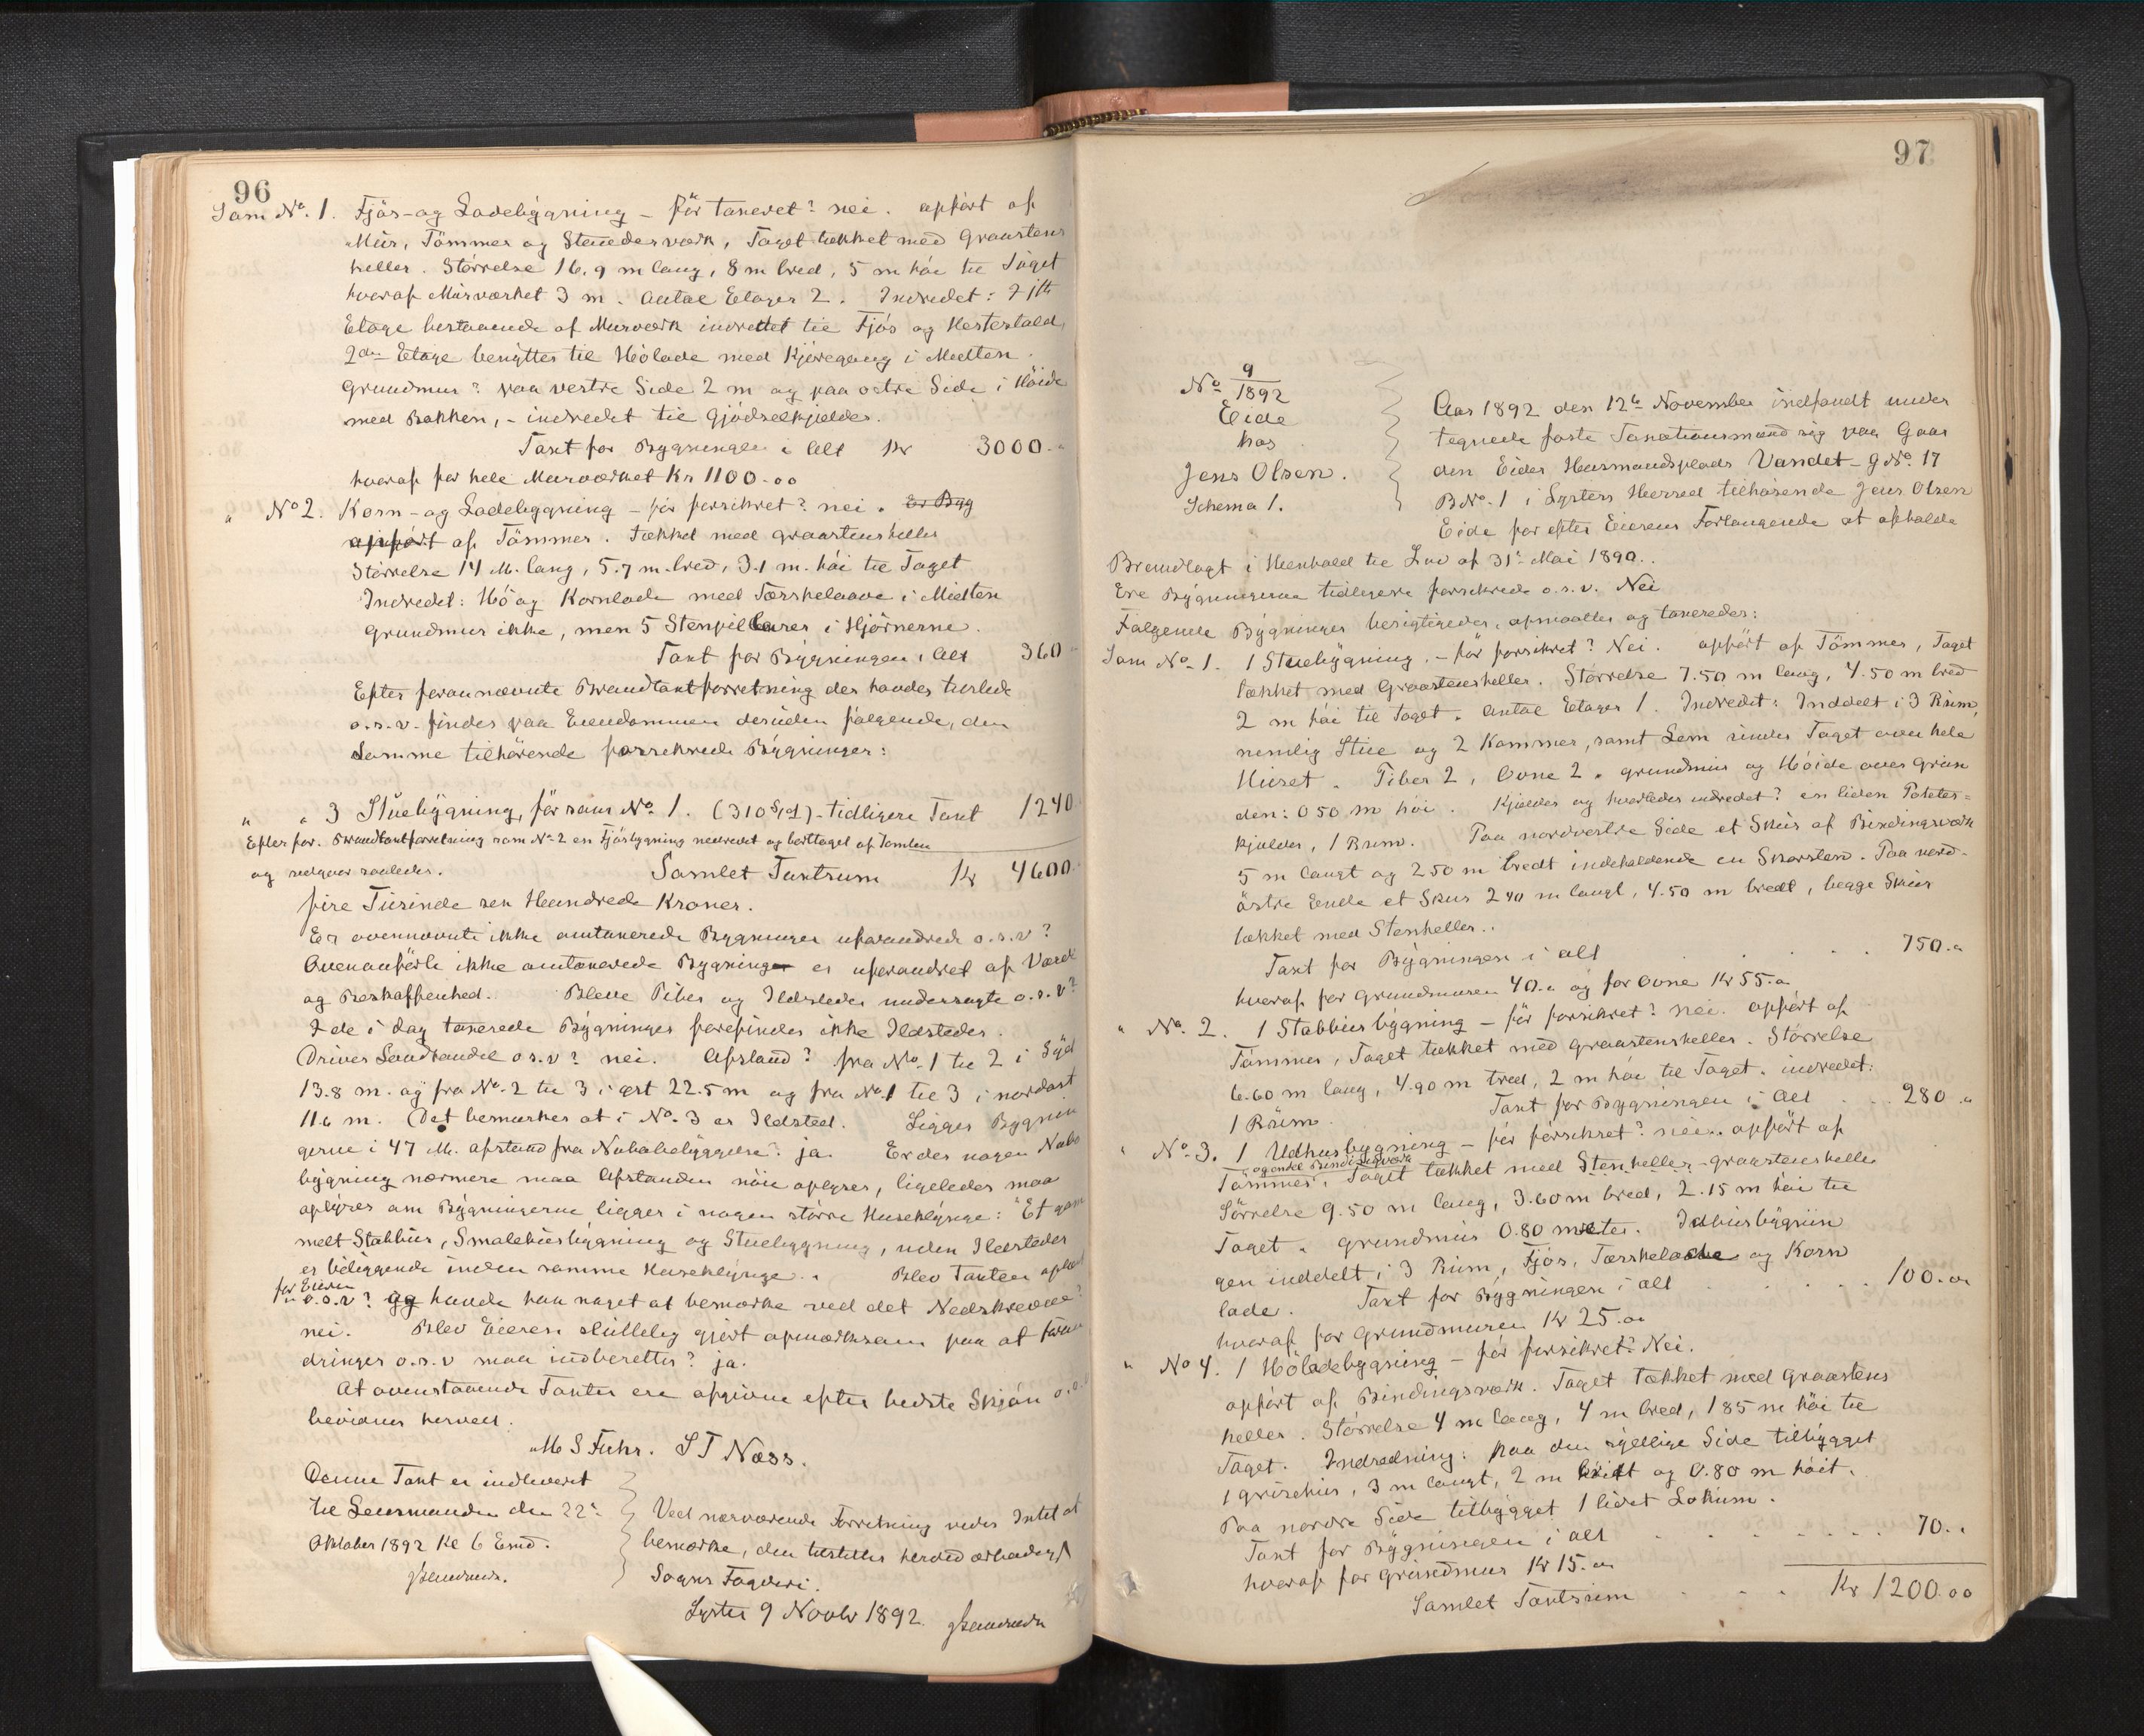 96
Som No. 1. Fjös- og Ladebygning - för taxeret? nei. opfört af
Mur, Tömmer og Stenderværk, Taget tækket med Graastens
heller. Störrelse 16.9 m lang, 8 m bred, 5 m höi til Taget
hvoraf Murværket 3 m. Antal Etager 2. Indredet:
Etage bestaaende af Murværk indrettet til Fjös og Hestestald,
2den Etage benyttes til Hölade med Kjöregang i Midten.
Grundmur? paa vestre Side 2 m og paa østre Side i Höide
med Bakken, - indredet til Gjödselkjelder.
Taxt for Bygningen i Alt Kr 3000.
hvoraf for hele Murværket Kr 1100.00
" No 2. Korn- og Ladebygning - för forsikret? nei. Er Byg
opfört af Tömmer. Tækket med Graastensheller
Störrelse 14 M. lang, 5.7 m. bred, 3.1 m. höi til Taget
Indredet: Hö og Kornlade med Tærskelaave i Midten
Grundmur ikke, men 5 Stenpillarer i Hjörnerne.
Taxt for Bygningen i Alt 360
Efter forannævnte Brandtaxtforretning der havdes tilstede
o.s.v. findes paa Eiendommen desuden følgende, den
samme tilhörende forsikrede Bygninger:
" " 3 Stuebygning, för som No. 1. (310 Spd) - tidligere Taxt 1240
Efter for. Brandtaxtforretning som No 2 en Fjösbygning nedrevet og borttaget af Tomten
og udgaar saaledes.
Samlet Taxtsum Kr 4600
fire Tusinde sex Hundrede Kroner.
Er ovennævnte ikke omtaxerede Bygninger uforandrede o.s.v?
Ovenanförte ikke omtaxerede Bygning er uforandret af Værd
og Beskaffenhed. Bleve Piber og Ildsteder undersøgte o.s.v?
I de i dag taxerede Bygninger forefindes ikke Ildsteder.
Drives Landhandel o s. v? nei. Afstand? fra No. 1 til 2 i Syd
13.8 m. og fra No. 2 til 3 i øst 22.5 m og fra No 1 til 3 i nordost
11.6 m. Det bemærkes at i No. 3 er Ildsted. Ligger Bygnin
gerne i 47 M. afstand fra Nabobebyggelse? ja. Er der nogen Nabo
bygning nærmere maa Afstanden nöie oplyses, ligeledes maa
oplyses om Bygningerne ligger i nogen större Huseklynge: Et gam
melt Stabbur, Smalehusbygning og Stuebygning, uden Ildsteder
er beliggende inden samme Huseklynge. Blev Taxten oplæst
for Eieren
o.s.v? og havde han noget at bemærke ved det Nedskrevne?
nei. Blev Eieren skriftlig gjört opmærksom paa at foran
dringer o.s.v maa indberettes? ja.
At ovenstaaende Taxter ere afgivne efter bedste Skjön o.s.v
bevidnes herved.
M S Fuhr. S T Næss.
Denne Taxt er indleveret
til Lensmanden den 22.
Oktober 1892 Kl 6 Emd.
Ved nærværende Forretning vides Intet at
bemærke, den tilstilles herved ærbødigst
Sogns Fogderi.
Lyster 9 Novbr 1892.
97
No 9/1892
Eide
hos
Jens Olsen.
Schema 1.
Aar 1892 den 12te November indfandt under
tegnede faste Taxationsmænd sig paa Gaar
den Eides Husmandsplads Vandet - G No. 17
B No. 1 i Lysters Herred tilhörende Jens Olsen
Eide for efter Eierens Forlangende at afholde
Brandtaxt i Henhold til Lov af 31te Mai 1890.
Ere Bygningerne tidligere forsikrede o.s.v. Nei
Følgende Bygninger besigtigedes, opmaaltes og taxeredes:
Som No. 1. 1 Stuebygning. - för forsikret? Nei. opfört af Tömmer, Taget
tækket med Graastensheller. Störrelse 7.50 m lang, 4.50 m bred
2 m höi til Taget. Antal Etager 1. Indredet: Inddelt i 3 Rum,
nemlig Stue og 2 Kammer, samt Lem under Taget over hele
Huset. Piber 2, Ovne 2. Grundmur og Höide over Grun
den: 0 50 m höi. Kjelder og hvorledes indredet? en liden Potetes-
kjelder, 1 Rum. Paa nordvestre Side et Skur af Bindingsværk
5 m langt og 2 50 m bredt indeholdende en Skorsten. Paa nord-
østre Ende et Skur 2 40 m langt, 4.50 m bredt, begge Skur
tækket med Stenheller.
Taxt for Bygningen i alt 750.00
hvoraf for Grundmuren 40.00 og for Ovne Kr 55.00
" No. 2. 1 Stabbursbygning - för forsikret? nei. opfört af
Tömmer, Taget tækket med Graastensheller. Störrelse
6.60 m lang, 4.90 m bred, 2 m höi til Taget. indredet:
1 Rum. Taxt for Bygningen i Alt 280.00
" No. 3. 1 Udhusbygning - för forsikret? nei. opfört af
og endel Bindingsværk
Tömmer, Taget tækket med Stenheller - graastensheller
Störrelse 9.50 m lang, 3.60 m bred, 2.15 m höi til
Taget. Grundmur 0.80 meter. Udhusbygnin
gen inddelt i 3 Rum, Fjös, Tærskelade og Korn
lade. Taxt for Bygningen i alt 100.00
hvoraf for Grundmuren Kr 25.00
" No 4. 1 Höladebygning - för forsikret? Nei.
opfört af Bindingsværk. Taget tækket med Graastens
heller. Störrelse 4 m lang, 4 m bred, 1 85 m höi til
Taget. Indredning: paa den sydlige Side tilbygget
1 grisehus, 3 m langt, 2 m bredt og 0.80 m höit.
Paa nordre Side tilbygget 1 lidet Lokum.
Taxt for Bygningen i alt 70.
hvoraf for Grundmur Kr 15.00
Samlet Taxtsum Kr 1200.00